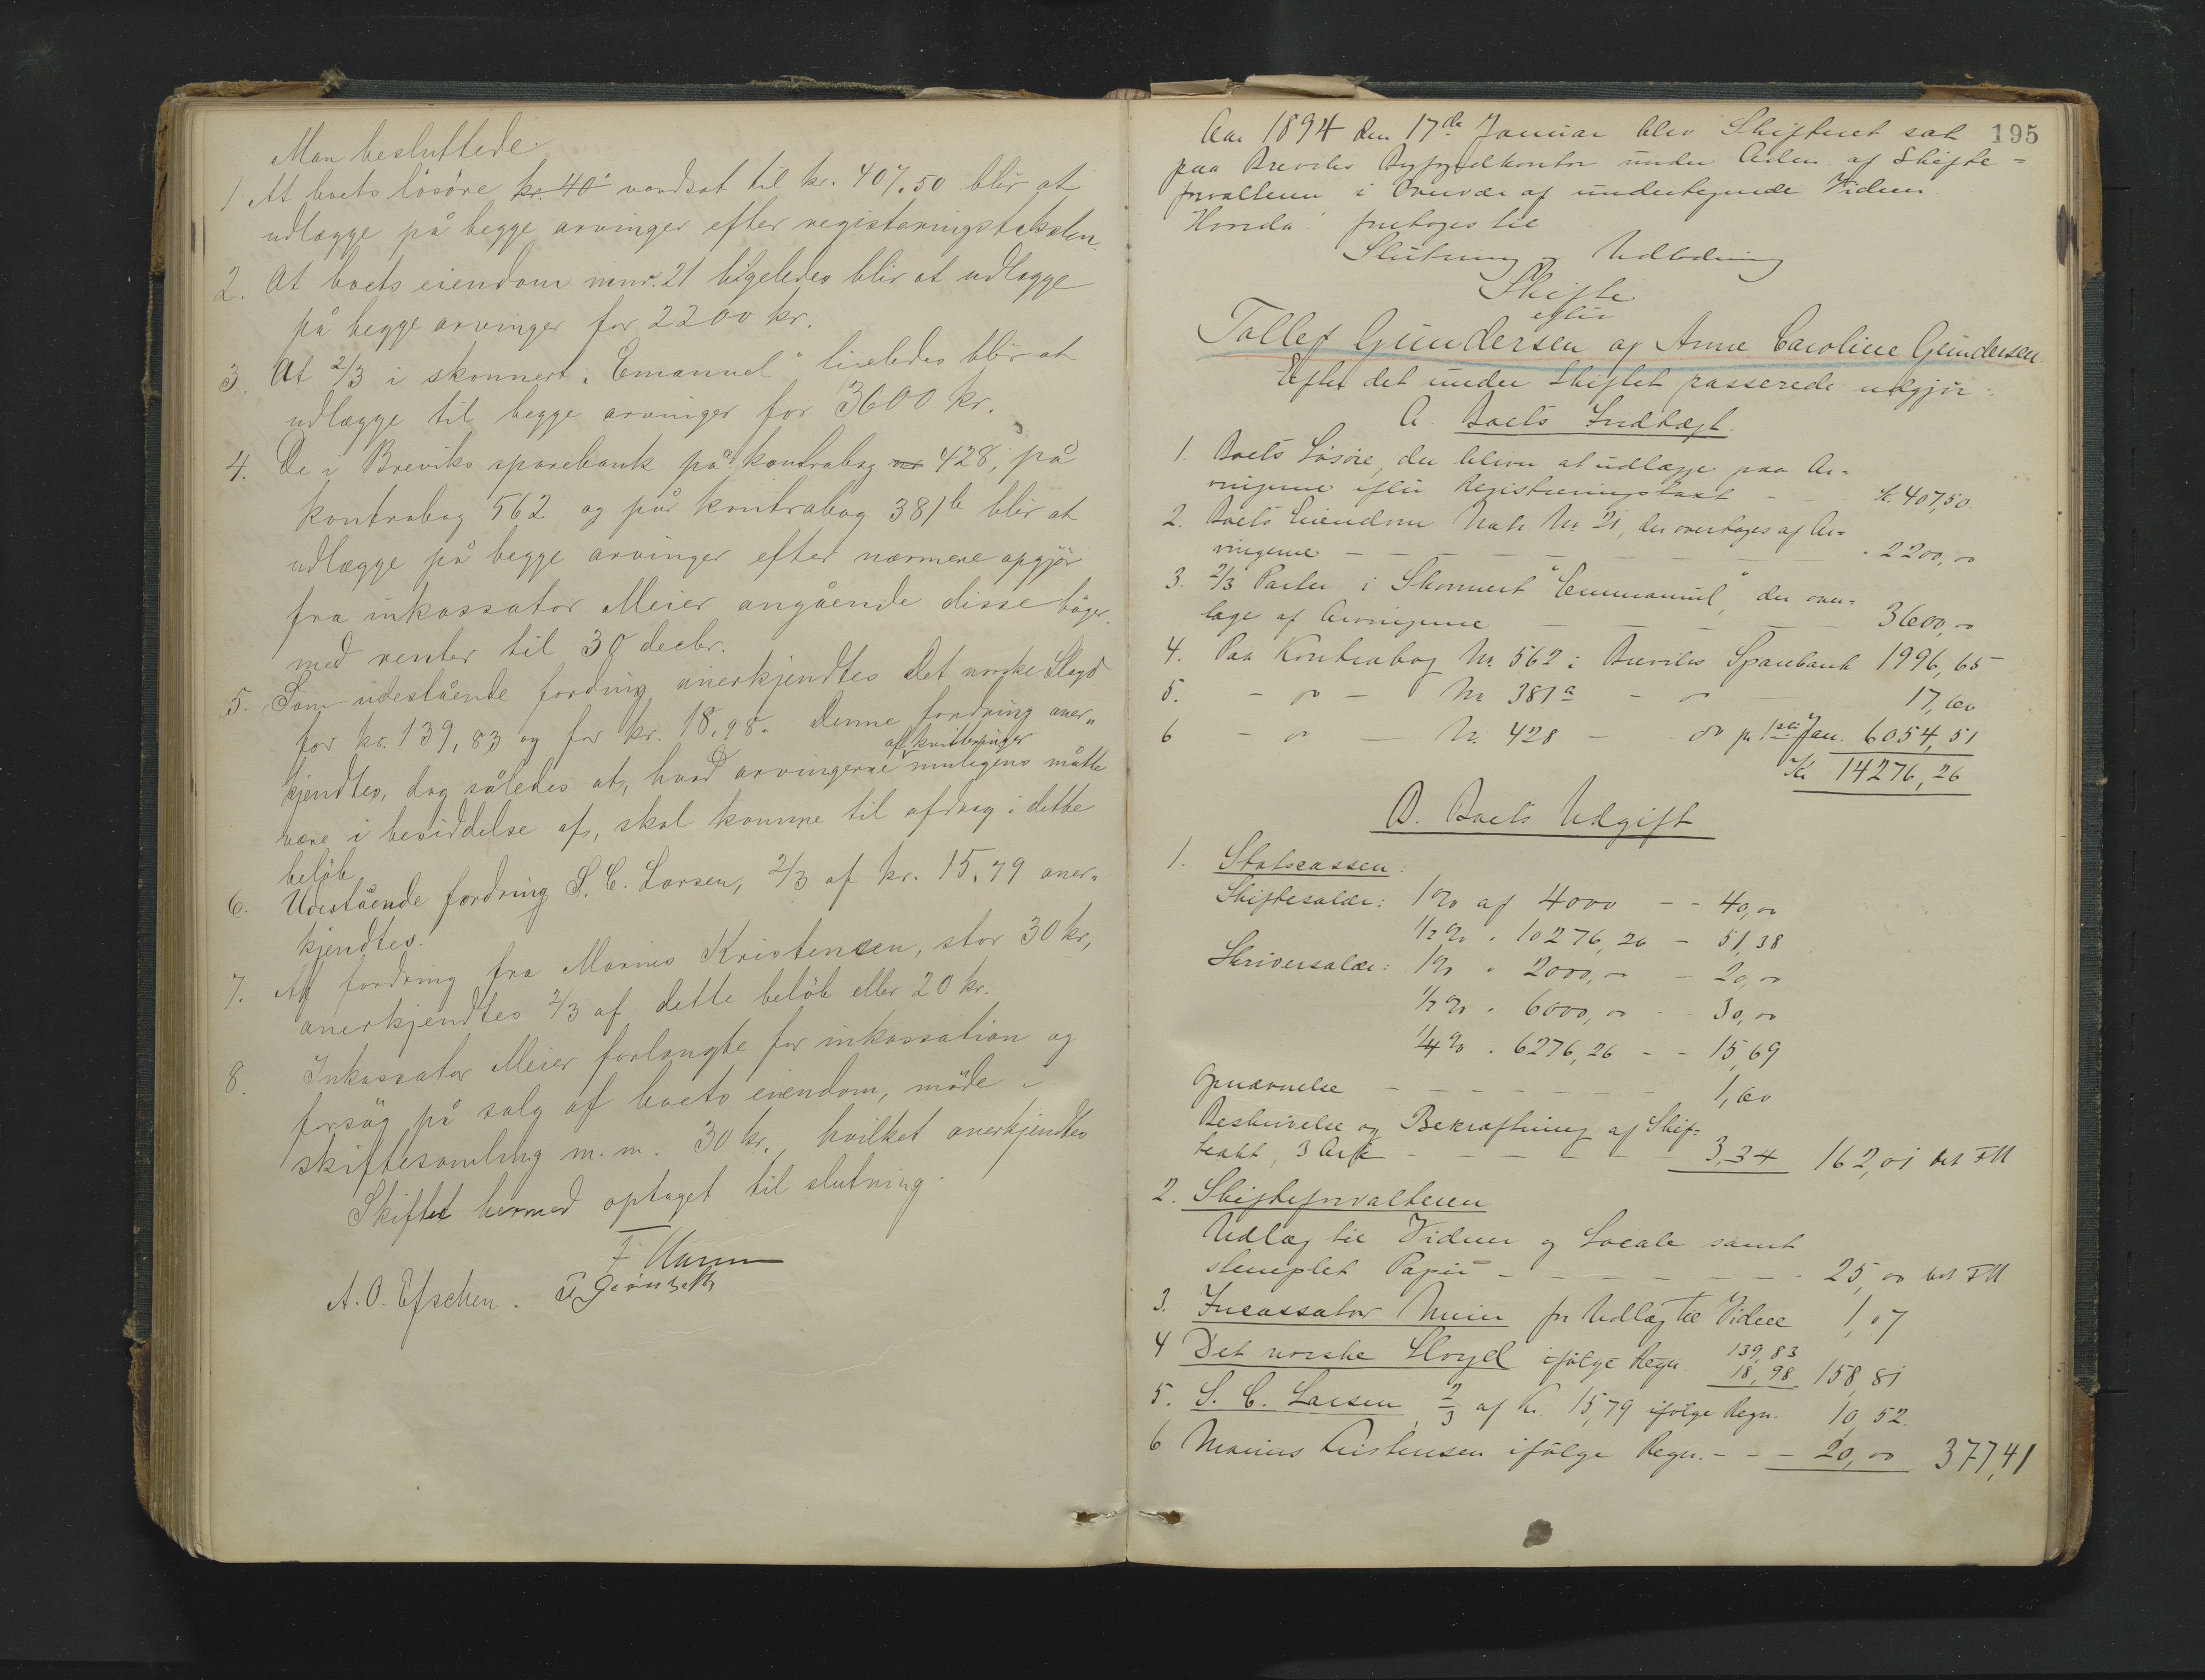 Man besluttede
1. At boets lösöre kr. 40 værdsat til kr. 407.50 blir at
udlægge på begge arvinger efter registeringstaksten.
2. At boets eiendom mnr. 21 ligeledes blir at udlægge
på begge arvinger for 2200 kr.
3. At 2/3 i skonnert "Emanuel" ligeledes blir at
udlægge til begge arvinger for 3600 kr.
4. De i Breviks sparebank på kontrabog no 428, på
kontrabog 562 og på kontrabog 381b blir at
udlægge på begge arvinger efter nærmere opgjör
fra inkassator Meier angående disse böger
med renter til 30 decbr.
5. Som udestående fordring anerkjendtes Det norske Sloyd
for kr. 139,83 og for kr. 18,98. Denne fordring aner„
af kvitteringer
kjendtes, dog således at, hvad arvingerne muligens måtte
være i besiddelse af, skal komme til afdrag i dette
belöb
6. Udestående fordring S. C. Larsen, 2/3 af kr. 15.79 aner„
kjendtes.
7. Af fordring fra Marius Kristensen, stor 30 kr,
anerkjendtes 2/3 af dette belöb eller 20 kr.
8. Inkassator Meier forlangte for inkassation og
forsög på salg af boets eiendom, möde i
skiftesamling m. m. 30 kr., hvilket anerkjendtes
Skiftet hermed optaget til slutning.
A. O. Efschen.
195
Aar 1894 den 17de Januar blev Skifteret sat
paa Breviks Byfogedkontor under Ledn. af Skifte=
forvalteren i Overvær af undertegnede Vidner
foretoges til
Slutning og Udlodning
Skifte
efter
Tollef Gundersen og Anne Caroline Gundersen.
Efter det under Skiftet passerede udgjör:
A. Boets Indtægt.
1. Boets Lösöre, der bliver at udlægge paa Ar=
vingerne efter Registreringstaxt - - K. 407,50.
2. Boets Eiendom Matr. Nr. 21, der overtages af Ar=
vingerne - - - - - - - 2200,00
3. 2/3 Parter i Skonnert "Emmanuel", der over=
tage af Arvingerne - - - - - 3600,00
4. Paa Kontrabog Nr. 562 i Breviks Sparebank 1996,65
5. - do - Nr 381a - do - 17,60
6 - do - Nr. 428 - - do pr 1ste Jan. 6054,51
Kr 14276,26
B. Boets Udgift
1. Statscassen:
Skiftesalær: 1% af 4000 - - 40,00
1/2% " 10276,26 - 51,38
Skriversalær: 1% " 2000,00 - 20,00
1/2% " 6000,00 - - 30,00
1/4% " 6276,26 - - 15,69
Opnævnelse - - - - - - 1,60
Beskrivelse og Bekræftning af Skif=
teakt, 3 Ark - - - - - - 3,34 162,01 bet FM
2. Skifteforvalteren
Udlæg til Vidner og Locale samt
stemplet Papir - - - - - - - 25,00 bet FM
3. Incassator Meier for Udlæg til Vidner 1,07
4 Det norske Sloyd ifölge Regn. 139,83
18,98 158,81
5. S. C. Larsen, 2/3 af Kr. 15,79 ifölge Regn. 10,52.
6 Marius Kristensen ifölge Regn. - - - 20,00 377,41